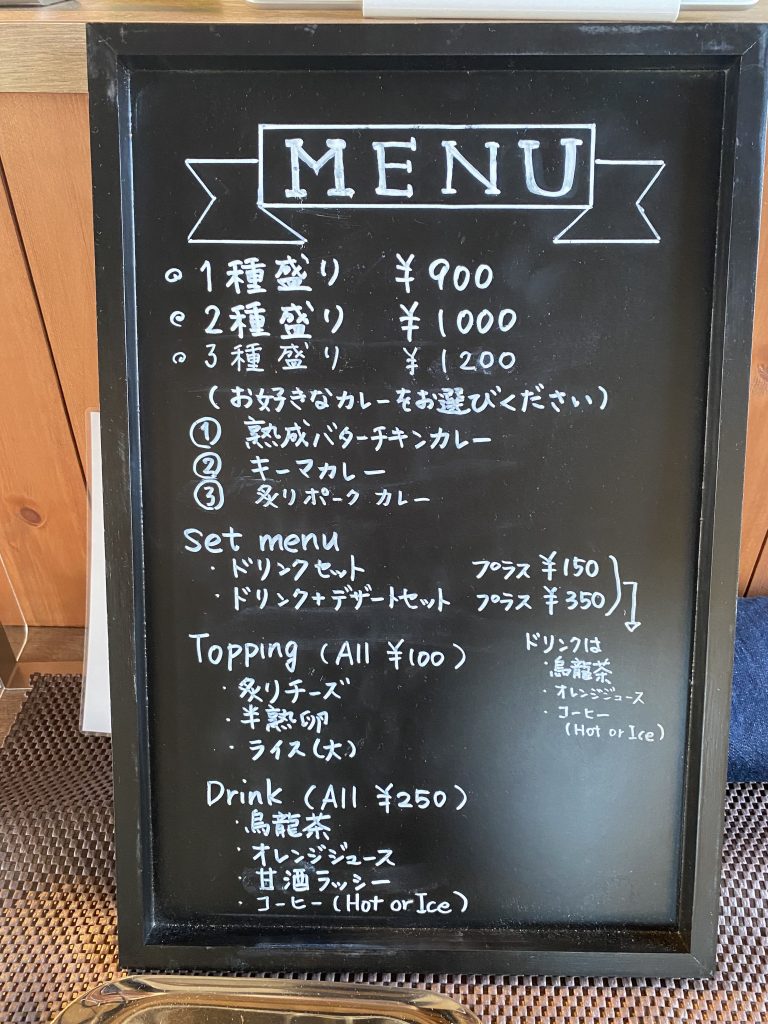 MENU
1種盛り ¥900
2種盛り ¥1000
3種盛り ¥1200
(お好きなカレーをお選びください)
① 熟成バターチキンカレー
② キーマカレー
③ 炙りポーク カレー
Set menu
・ドリンクセット プラス ¥150
・ドリンク+デザートセット プラス ¥350
ドリンクは
・烏龍茶
・オレンジジュース
・コーヒー
(Hot or Ice)
Topping (All ¥100)
・炙りチーズ
・半熟卵
・ライス(大)
Drink (All ¥250)
・烏龍茶
・オレンジジュース
・甘酒ラッシー
・コーヒー(Hot or Ice)